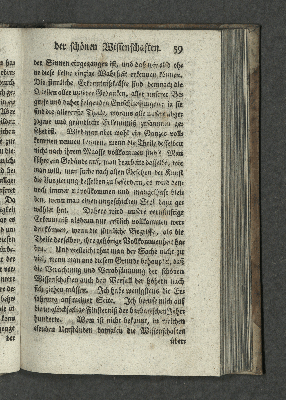 der schönen Wissenschaften. 59
der Sinnen eingegangen ist, und daß wir also ohne
diese keine einzige Wahrheit erkennen können.
Die sinnliche Erkenntniskräfte sind demnach die
Quellen aller unserer Gedanken, aller unserer Be
griffe und daher folgenden Entschliessungen; ja sie
sind die allererste Theile, woraus alle unsere abge
zogene und gründliche Erkenntniß zusammen ge
setzet ist. Wird man aber wohl ein Ganzes voll
kommen nennen können, wenn die Theile desselben
nicht nach ihrem Maasse vollkommen sind? Man
führe ein Gebäude auf, man bearbeite dasselbe, wie
man will, man suche nach allen Gesetzen der Kunst
die Auszierung desselben zu befördern, es wird den
noch immer unvollkommen und mangelhaft blei
ben, wenn man einen ungeschickten Stof dazu ge
wählet hat. Daher wird unsere vernünftige
Erkenntniß niemals auf völlig vollkommen wer
den können, wenn die sinnliche Begriffe, als die
Theile derselben, ihre gehörige Vollkommenheit ha
ben. Und vielleicht thut man der Sache nicht zu
viel, wenn man aus diesem Grunde behauptet, daß
die Verachtung und Verabsäumung der schönen
Wissenschaften auch den Verfall der höhern nach
sich ziehen müssen. Ich habe wenigstens die Er
fahrung auf meiner Seite. Ich berufe mich auf
die unglückselige Finsterniß der barbarischen Jahr
hunderte. Wem ist nicht bekannt, in welchen
elenden Umständen damals die Wissenschaften
über